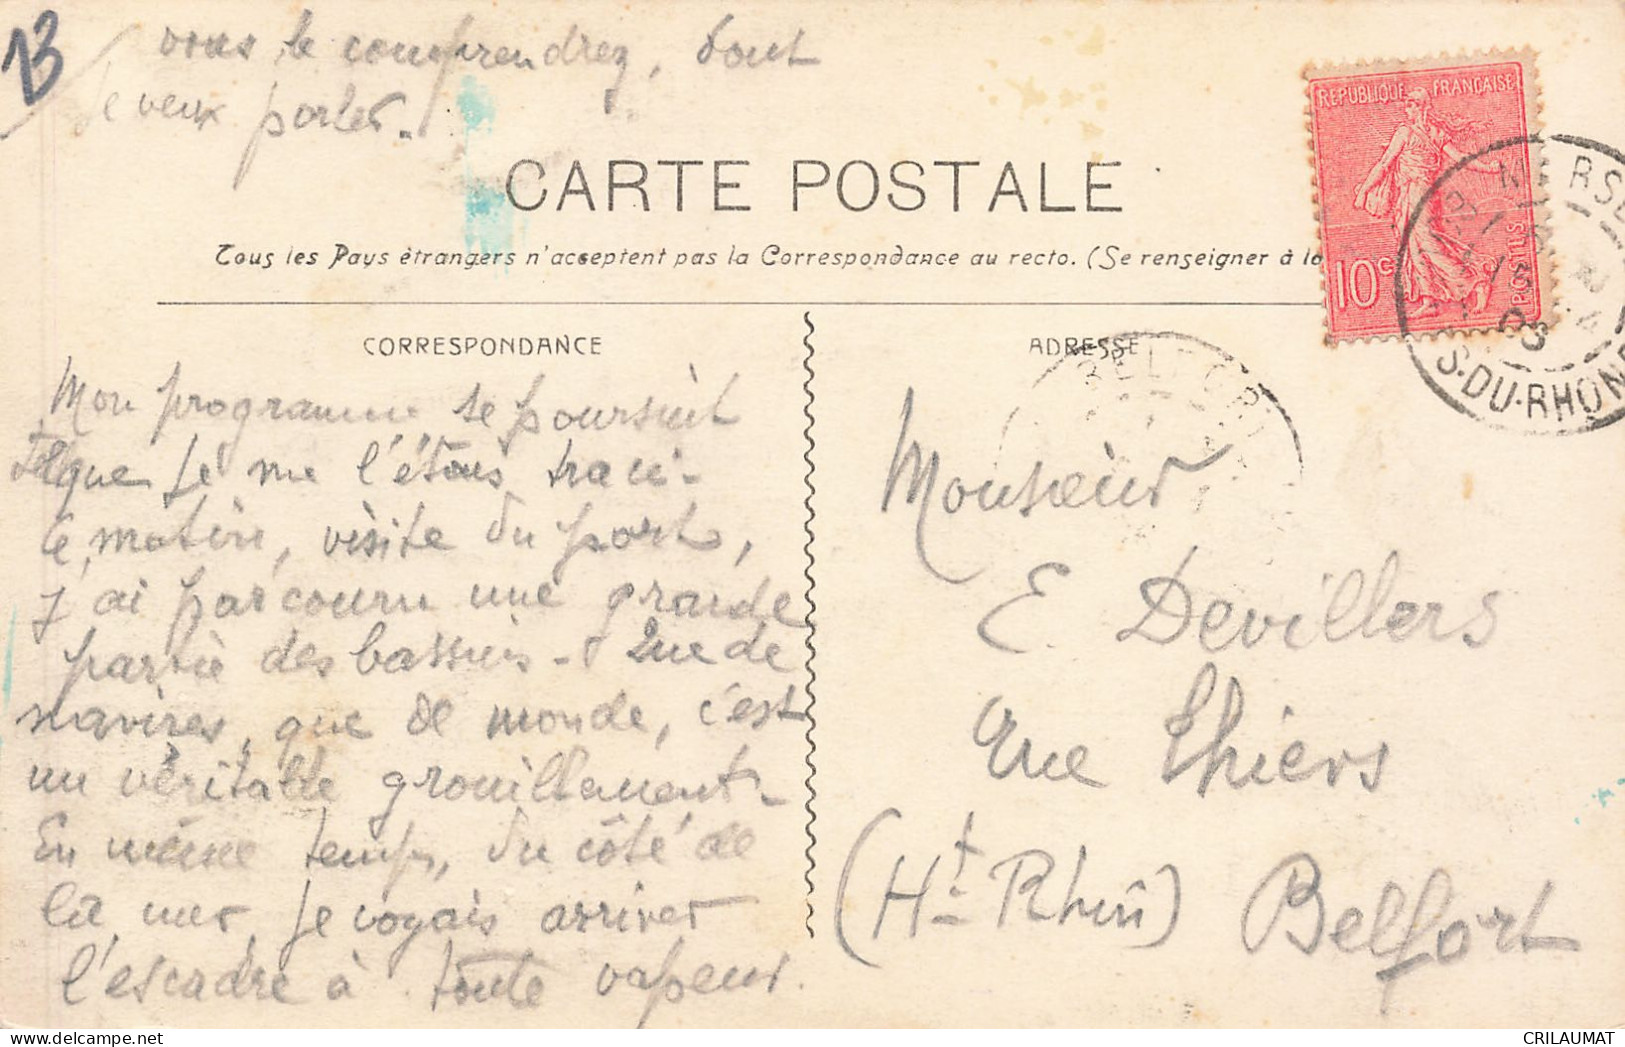 13
vous le comprendrez, dont
je veux parler.
CARTE POSTALE
Tous les Pays étrangers n'acceptent pas la Correspondance au recto. (Se renseigner à la
REPUBLIQUE FRANÇAISE
10c
POSTES
S.-DU-RHONE
03
CORRESPONDANCE
ADRESSE
BELFORT
Mon programme se poursuit
Tel que je me l'étais tracé -
Ce matin, visite du port,
j'ai parcouru une grande
partie des bassins - Que de
navires, que de monde, c'est
un véritable grouillement -
En même temps, du côté de
la mer, je voyais arriver
l'escadre à toute vapeur.
Monsieur
E. Devillers
rue Thiers
(Ht- Rhin) Belfort
CRILAUMAT